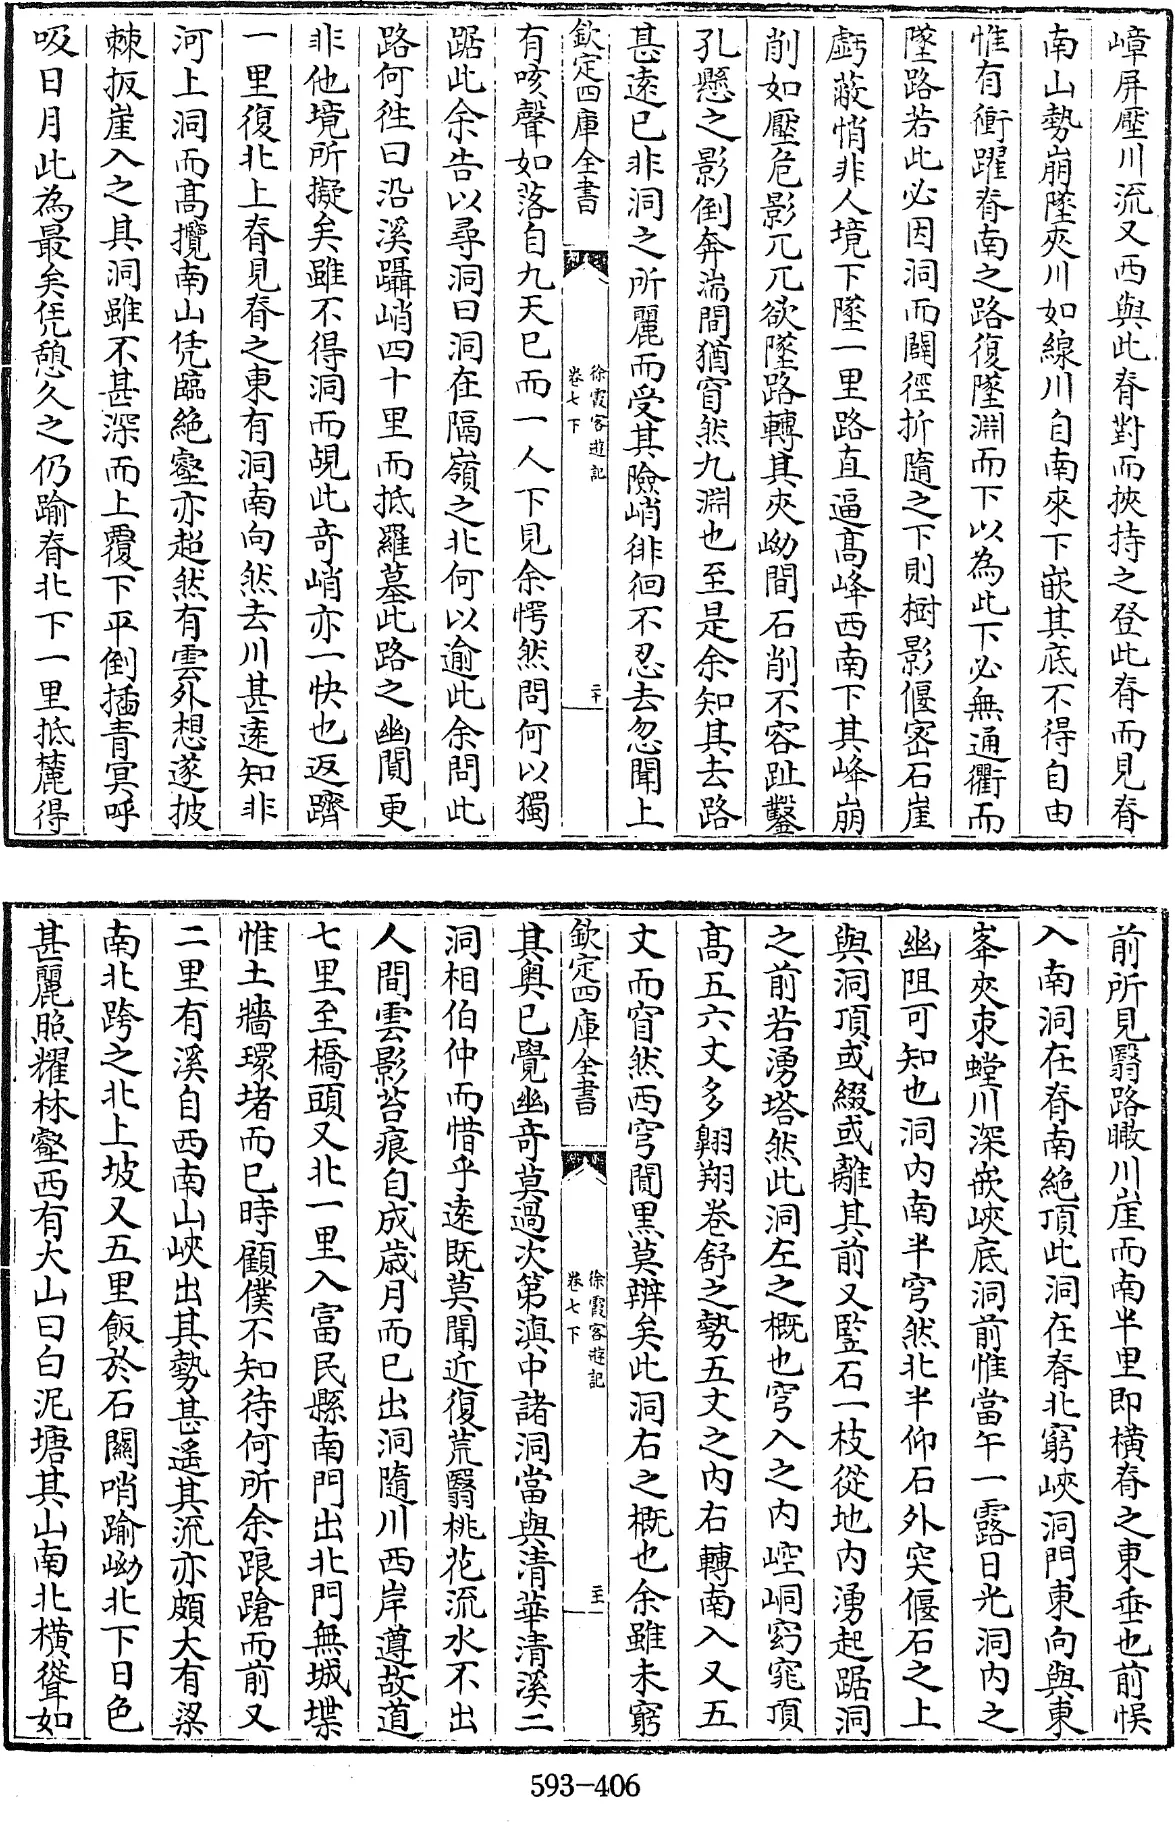 嶂屏壓川流又西與此脊對而挾持之登此脊而見脊
南山勢崩墜夾川如線川自南來下嵌其底不得自由
惟有衝躍脊南之路復墜淵而下以為此下必無通衢而
墜路若此必因洞而闢徑折隨之下則樹影偃密石崖
虧蔽悄非人境下墜一里路直逼高峰西南下其峰崩
削如壓危影兀兀欲墜路轉其夾坳間石削不容趾鑿
孔懸之影倒奔湍間猶窅然九淵也至是余知其去路
甚遠已非洞之所麗而受其險峭徘徊不忍去忽聞上
欽定四庫全書
徐霞客遊記
卷七下
二十
有咳聲如落自九天已而一人下見余愕然問何以獨
踞此余告以尋洞曰洞在隔嶺之北何以逾此余問此
路何徃曰沿溪躡峭四十里而抵羅墓此路之幽閴更
非他境所擬矣雖不得洞而覘此竒峭亦一快也返躋
一里復北上脊見脊之東有洞南向然去川甚遠知非
河上洞而高攬南山凭臨絶壑亦超然有雲外想遂披
棘扳崖入之其洞雖不甚深而上覆下平倒插青冥呼
吸日月此為最矣凭憩久之仍踰脊北下一里抵麓得
前所見翳路瞰川崖而南半里即横脊之東垂也前悞
入南洞在脊南絶頂此洞在脊北窮峽洞門東向與東
峯夾束螳川深嵌峽底洞前惟當午一露日光洞内之
幽阻可知也洞内南半穹然北半仰石外突偃石之上
與洞頂或綴或離其前又竪石一枝從地内湧起踞洞
之前若湧塔然此洞左之概也穹入之内崆峒窈窕頂
高五六丈多翺翔卷舒之勢五丈之内右轉南入又五
丈而窅然西穹閴黒莫辨矣此洞右之概也余雖未窮
欽定四庫全書
徐霞客遊記
卷七下
二十一
其奥已覺幽竒莫過次第滇中諸洞當與清華清溪二
洞相伯仲而惜乎遠既莫聞近復荒翳桃花流水不出
人間雲影苔痕自成歲月而已出洞隨川西岸遵故道
七里至橋頭又北一里入富民縣南門出北門無城堞
惟土牆環堵而已時顧僕不知待何所余踉蹌而前又
二里有溪自西南山峽出其勢甚遥其流亦頗大有梁
南北跨之北上坡又五里飯於石關哨踰坳北下日色
甚麗照耀林壑西有大山曰白泥塘其山南北横聳如
593-406